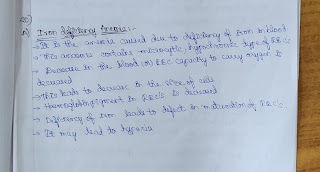 a) Iron deficiency Anemia:-
→ It is the anemia caused due to deficiency of Iron in blood
→ This anemia contains microcytic, hypochromic type of RBC's
→ Decrease in the blood (or) RBC capacity to carry oxygen is
decreased
→ This leads to decrease in the size of cells
→ Haemoglobin pigment in RBC's is decreased
→ Deficiency of iron leads to defect in maturation of RBC's
→ It may lead to hypoxia